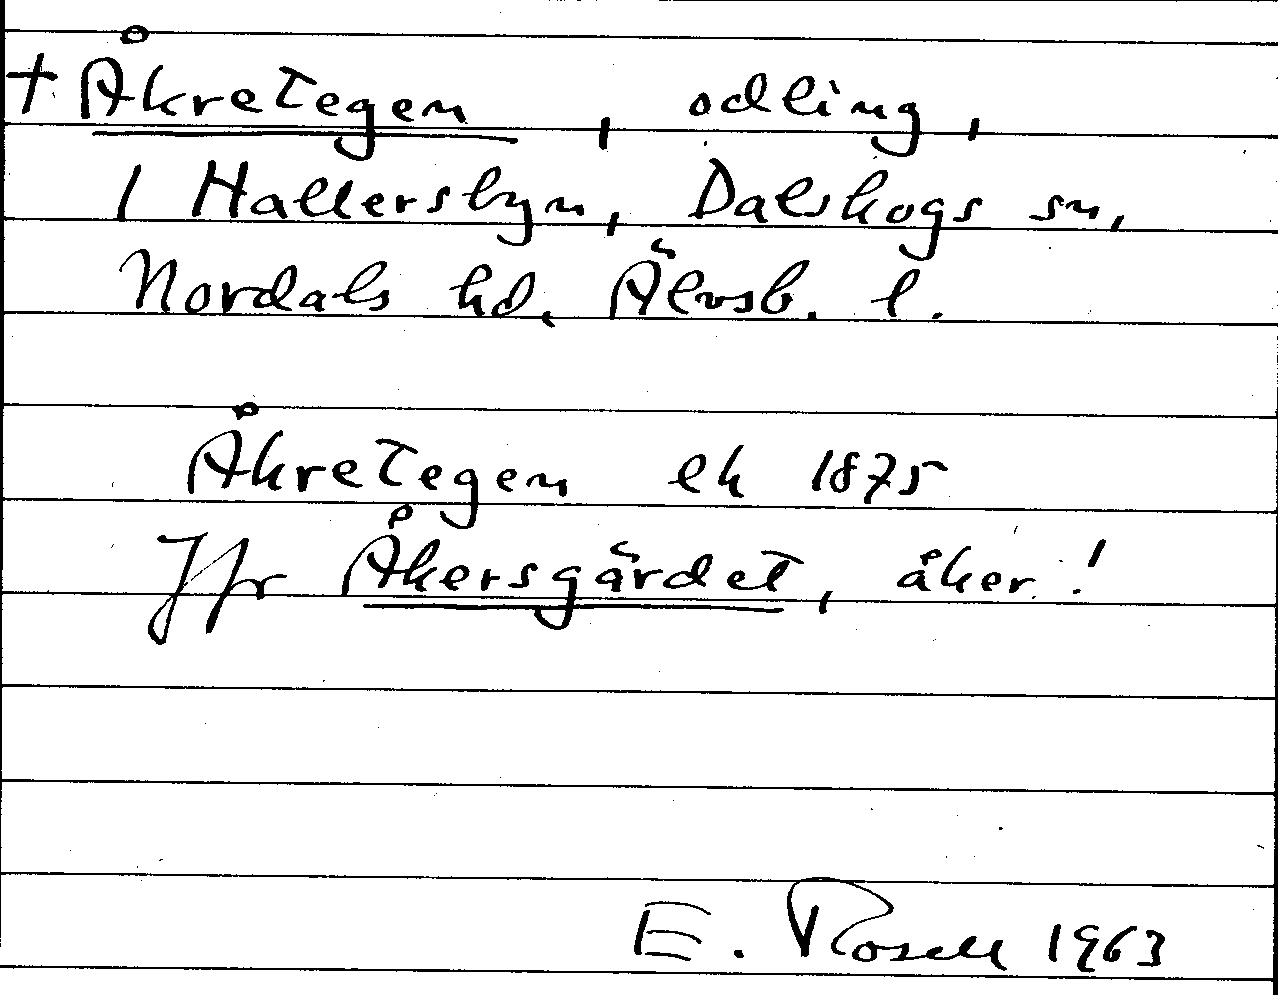 † Åkretegen, odling,
1 Hallersbyn, Dalskogs sn,
Nordals hd. Älvsb. l.
Åkretegen ek 1875
Jfr Åkersgärdet, åker!
E. Rosell 1963